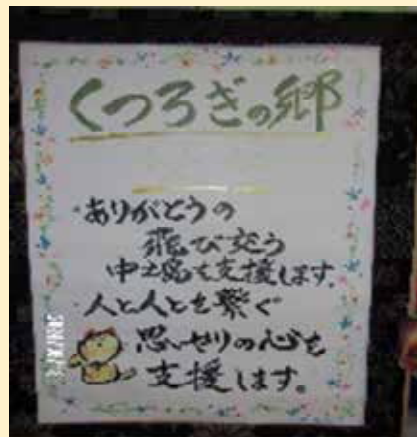 くつろぎの郷
・ありがとうの
飛び交う
支援します。
・人と人とを繋ぐ
思いやりの心を
支援します。